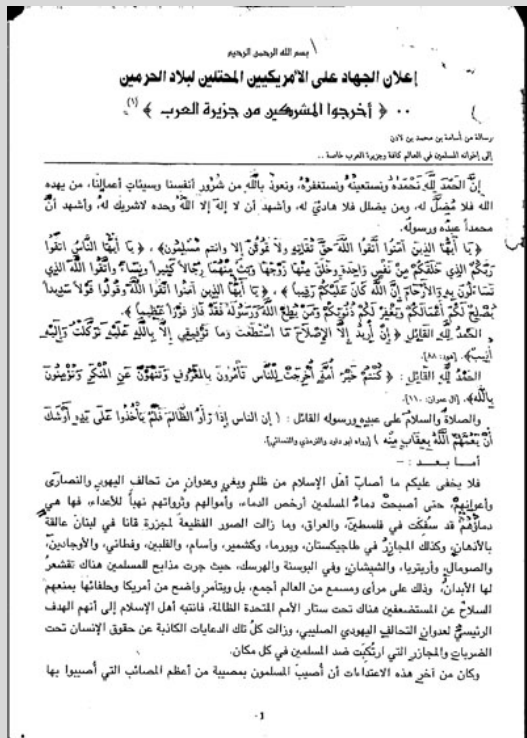 بسم الله الرحمن الرحيم
إعلان الجهاد على الأمريكيين المحتلين لبلاد الحرمين
.. ﴿ أخرجوا المشركين من جزيرة العرب ﴾ (١)
رسالة من أسامة بن محمد بن لادن
إلى إخوانه المسلمين في العالم كافة وجزيرة العرب خاصة ..
إنَّ الحَمْدَ لِلَّهِ نَحْمَدُهُ ونستعينُهُ ونستغفرُهُ، ونعوذُ باللَّهِ من شُرُورِ أنفسِنا وسيئاتِ أعمالِنا، من يهده
الله فلا مُضِلَّ له، ومن يضلل فلا هاديَ له، وأشهد أن لا إله إلا الله وحده لاشريك له، وأشهد أنَّ
محمداً عبدُه ورسولُه.
﴿يَا أَيُّهَا الَّذِينَ آمَنُوا اتَّقُوا اللَّهَ حَقَّ تُقَاتِهِ ولَا تَمُوتُنَّ إلا وأنتم مُسْلِمُون﴾، ﴿ يَا أَيُّهَا النَّاسُ اتَّقُوا
رَبَّكُمُ الَّذِي خَلَقَكُمْ مِنْ نَفْسٍ وَاحِدَةٍ وَخَلَقَ مِنْهَا زَوْجَهَا وَبَثَّ مِنْهُمَا رِجَالاً كَثِيراً وَنِسَاءً وَاتَّقُوا اللَّهَ الَّذِي
تَسَاءَلُونَ بِهِ وَالأَرْحَامَ إِنَّ اللَّهَ كَانَ عَلَيْكُمْ رَقِيباً ﴾ ، ﴿ يَا أَيُّهَا الَّذِينَ آمَنُوا اتَّقُوا اللَّهَ وَقُولُوا قَوْلاً سَدِيداً
يُصْلِحْ لَكُمْ أَعْمَالَكُمْ وَيَغْفِرْ لَكُمْ ذُنُوبَكُمْ وَمَنْ يُطِعِ اللَّهَ وَرَسُولَهُ فَقَدْ فَازَ فَوْزاً عَظِيماً ﴾.
الحَمْدُ لِلَّهِ القَائِلِ ﴿ إِنْ أُرِيدُ إِلاَّ الإِصْلاَحَ مَا اسْتَطَعْتُ وَمَا تَوْفِيقِي إِلاَّ بِاللَّهِ عَلَيْهِ تَوَكَّلْتُ وَإِلَيْهِ
أُنِيبُ﴾. [هود: ٨٨].
الحَمْدُ لِلَّهِ القَائِلِ : ﴿ كُنْتُمْ خَيْرَ أُمَّةٍ أُخْرِجَتْ لِلنَّاسِ تَأْمُرُونَ بِالمَعْرُوفِ وَتَنْهَوْنَ عَنِ المُنْكَرِ وَتُؤْمِنُونَ
بِاللَّهِ﴾. [آل عمران: ١١٠].
والصلاةُ والسلامُ على عبدِه ورسولِه القائلِ : ( إن الناس إذا رَأَوُا الظَّالِمَ فَلَمْ يَأْخُذُوا عَلَى يَدِهِ أَوْشَكَ
أَنْ يَعُمَّهُمُ اللَّهُ بِعِقَابٍ مِنْه ) [رواه أبو داود والترمذي والنسائي].
أمـا بـعـد : –
فلا يخفى عليكم ما أصابَ أهْلَ الإسلام من ظلمٍ وبغيٍ وعدوانٍ من تحالف اليهودِ والنصارى
وأعوانِهِمْ، حتى أصبحتْ دماءُ المسلمين أرخصَ الدماء، وأموالهم وثرواتهم نهباً للأعداء، فها هي
دماؤُهُمْ قد سفكت في فلسطين، والعراق، وما زالت الصور الفظيعة لمجزرة قانا في لبنان عالقة
بالأذهان، وكذلك المجازرُ في طاجيكستان، وبورما، وكشمير، وأسام، والفلبين، وفطاني، والأوجادين،
والصومال، وأريتريا، والشيشان، وفي البوسنة والهرسك، حيث جرت مذابح للمسلمين هناك تقشعرُ
لها الأبدانُ، وذلك على مرأى ومسمع من العالم أجمع، بل وبتآمرٍ واضح من أمريكا وحلفائها بمنعهم
السلاح عن المستضعفين هناك تحت ستار الأمم المتحدة الظالمة، فانتبه أهل الإسلام إلى أنهم الهدف
الرئيسيُّ لعدوان التحالف اليهودي الصليبي، وزالت كلُّ تلك الدعايات الكاذبة عن حقوق الإنسان تحت
الضربات والمجازر التي ارتُكِبَت ضد المسلمين في كل مكان.
وكان من آخر هذه الاعتداءات أن أُصيبَ المسلمون بمصيبة من أعظم المصائب التي أُصيبوا بها
٠١